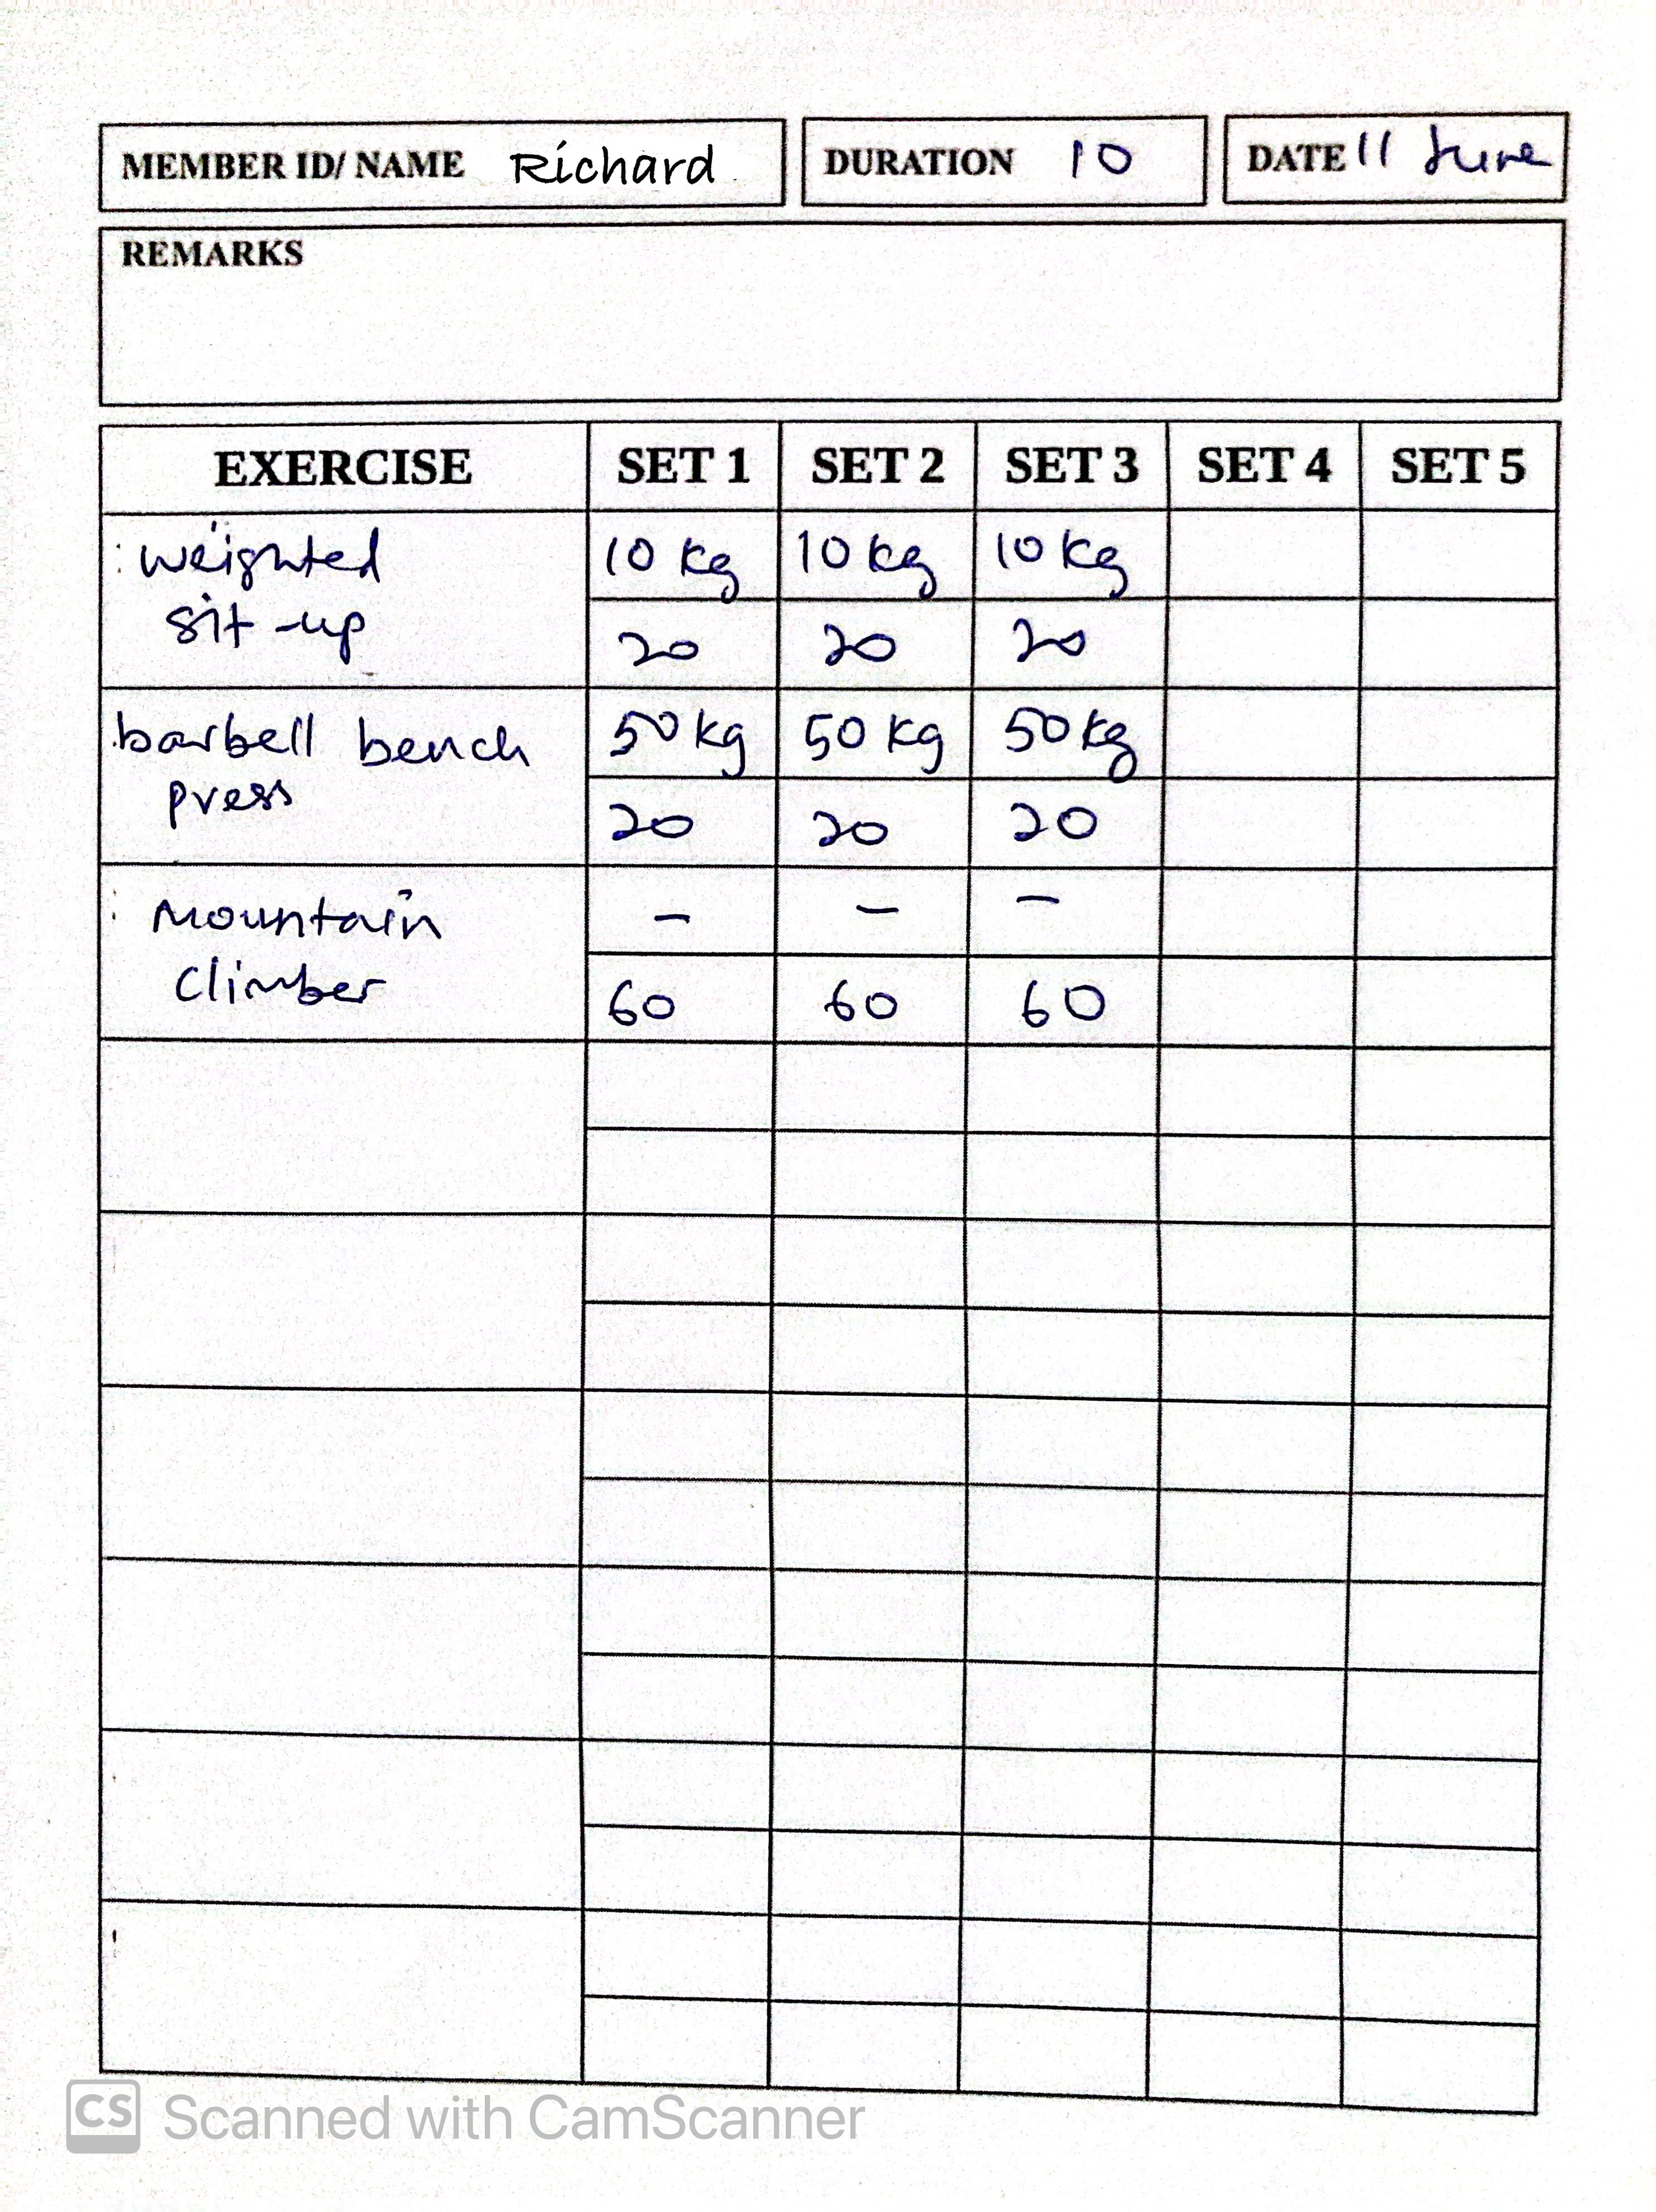 MEMBER ID/ NAME Richard DURATION 10 DATE 11 June
REMARKS
EXERCISE SET 1 SET 2 SET 3 SET 4 SET 5
weighted 10 kg 10 kg 10 kg
sit-up 20 20 20
barbell bench 50 kg 50 kg 50 kg
press 20 20 20
Mountain - - -
Climber 60 60 60
CS Scanned with CamScanner